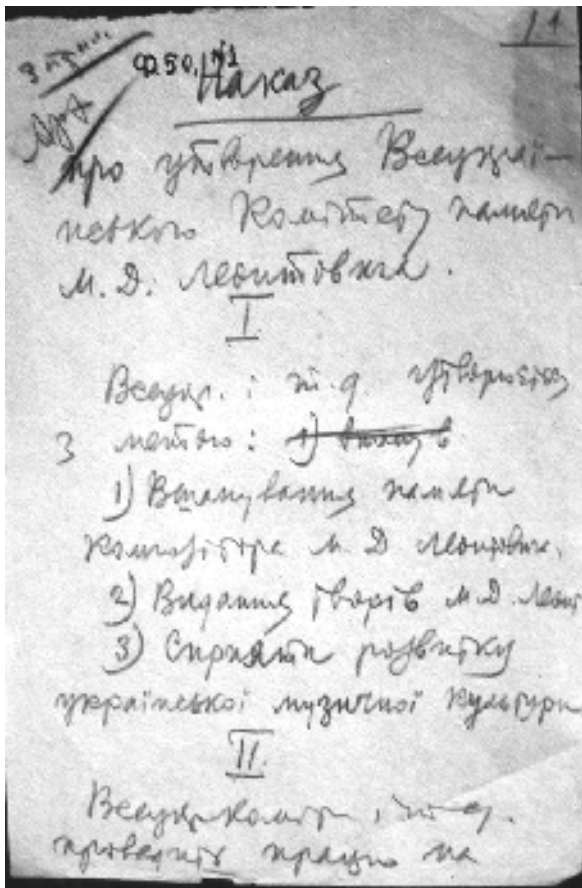 1
З ориг.
Ф 50, №1
Наказ
про утворення Всеукраї-
нського Комітету памяти
М. Д. Леонтовича.
I
Всеукр. і т. д. утворюється
з метою: 1)
1) Вшанування памяти
композітора М. Д Леонтович.
2) Видання творів М. Д. Леонт
3) Сприяти розвитку
української музичної культури
II.
Всеукр. комітет і т. д.
провадить працю на